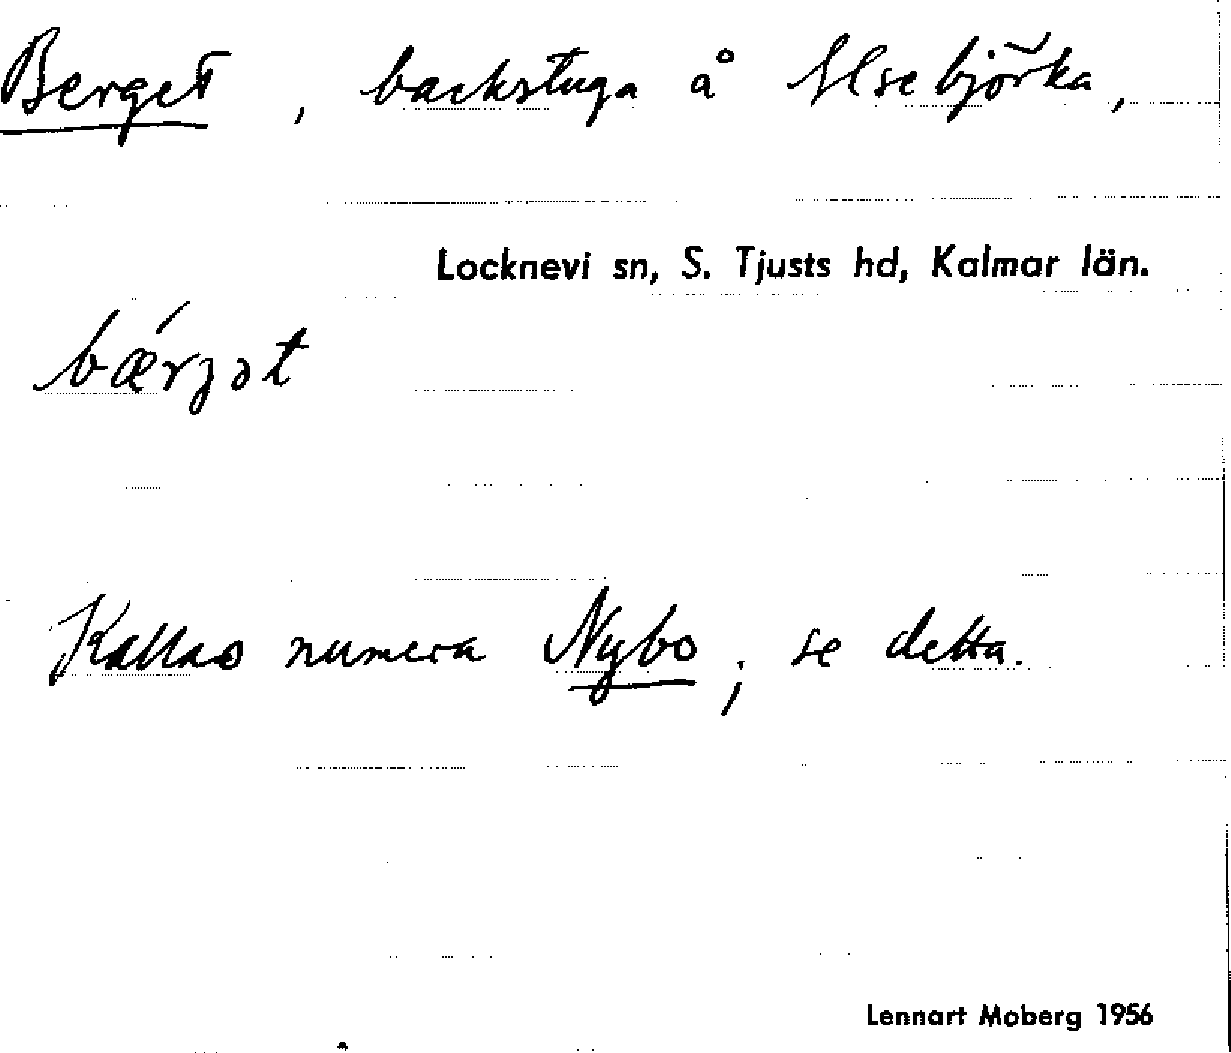 Berget, backstuga å Älsebjörka,
Locknevi sn, S. Tjusts hd, Kalmar län.
bǽrgət
Kallas numera Nybo; se detta.
Lennart Moberg 1956